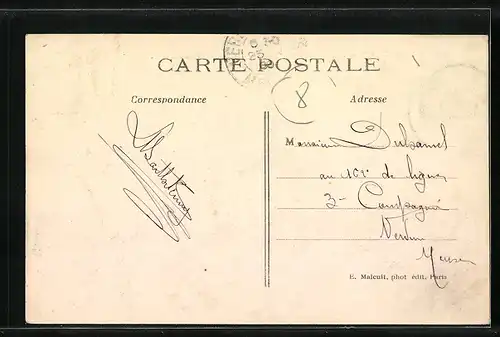 CARTE POSTALE
Correspondance
Adresse
8
Monsieur Duhamel
au de ligne
3e Compagnie
Verdun
Meuse
E. Malcuit, phot édit. Paris